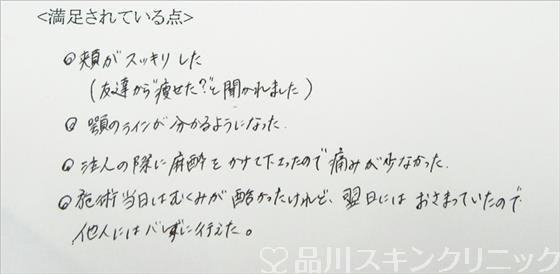 <満足されている点>
◎ 頬がスッキリした
(友達から"痩せた?"と聞かれました)
◎ 顎のラインが分かるようになった.
◎ 法人の際に麻酔をかけて下さったので痛みが少なかった.
◎ 施術当日はむくみが酷かったけれど、翌日にはおさまっていたので
他人にはバレずに行えた。
品川スキンクリニック